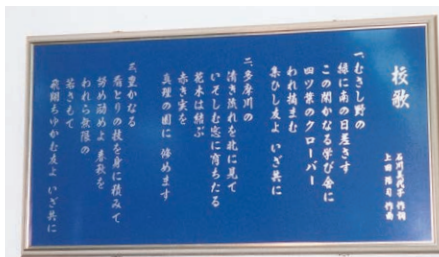 校歌
石川美代子 作詞
上田 隆司 作曲
一、むさし野の
緑に南の日差さす
この閑かなる学び舎に
四ツ葉のクローバー
われ摘まむ
集ひし友よ いざ共に
二、多摩川の
清き流れを北に見て
いそしむ窓に育ちたる
花木は結ぶ
赤き実を
真理の園に 締めます
三、豊かなる
看とりの技を身に積みて
努め励めよ 春秋を
われら無限の
若さもて
飛翔りゆかむ友よ いざ共に